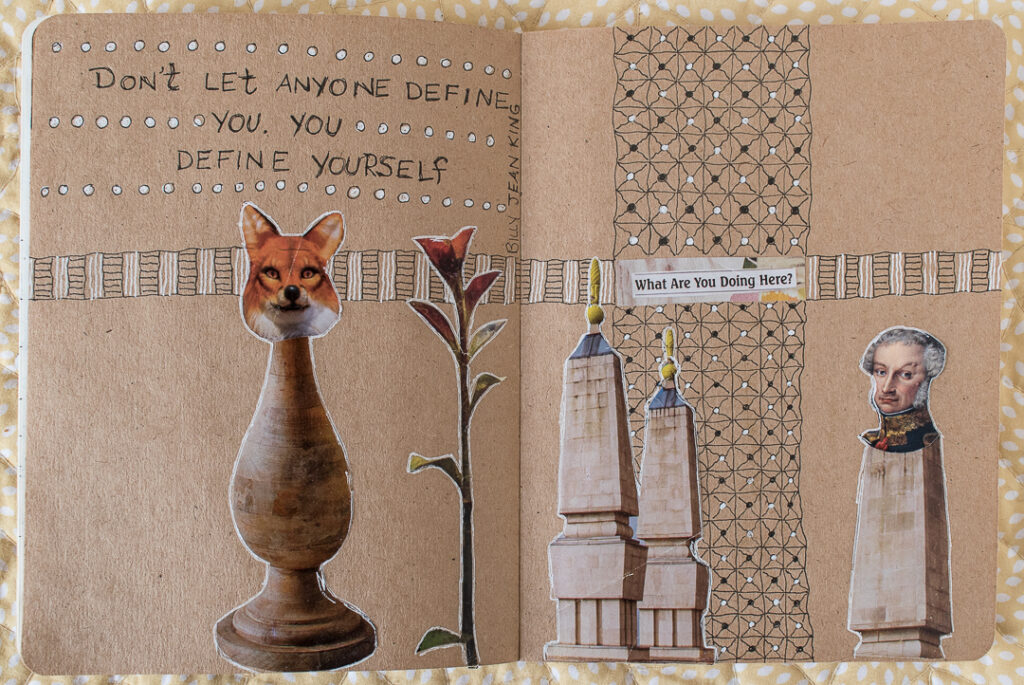 DON't LEt ANYONE DEFINE
YOU. YOU
DEFINE YOURSELf
BILLY JEAN KING
What Are You Doing Here?